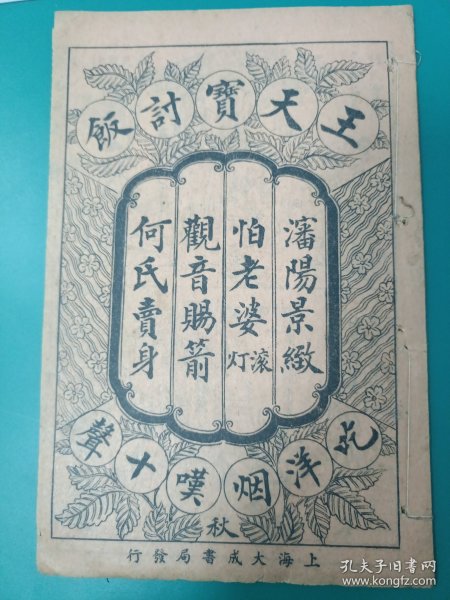 王天寶討飯
瀋陽景緻
怕老婆滚灯
觀音賜箭
何氏賣身
吃洋烟嘆十聲
秋
上海大成書局發行
孔夫子旧书网
www.kongfz.com